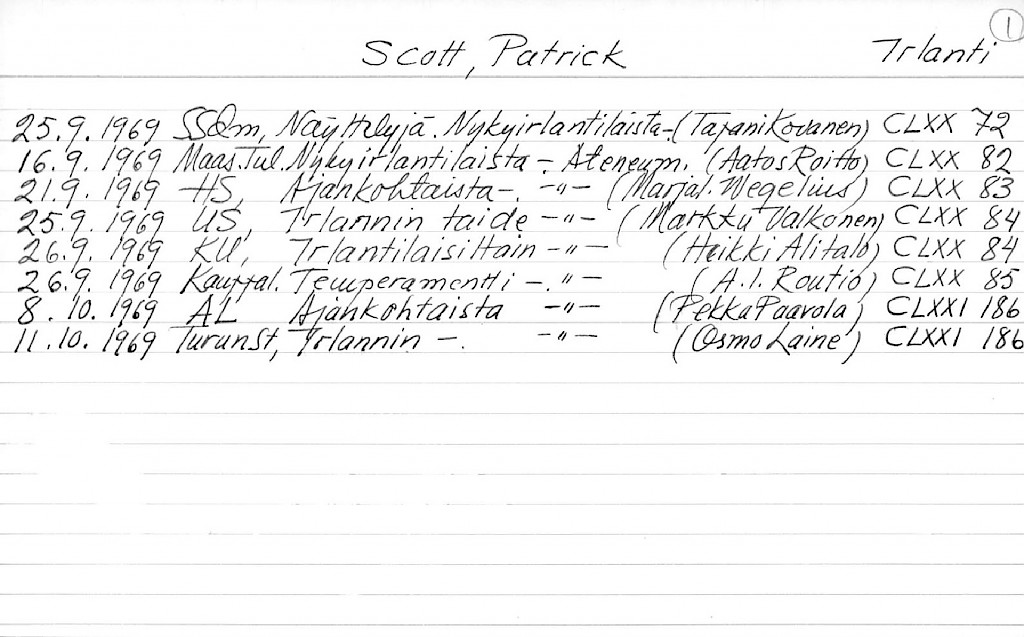 1
Scott, Patrick Irlanti
25.9.1969 SSDm, Näyttelyjä. Nykyirlantilaista - (Tapani Kovanen) CLXX 72
16.9.1969 Maas.Tul. Nykyirlantilaista - Ateneum. (Aatos Roitto) CLXX 82
21.9.1969 HS, Ajankohtaista - . -"- (Marjal. Wegelius) CLXX 83
25.9.1969 US, Irlannin taide -"- (Markku Valkonen) CLXX 84
26.9.1969 KU, Irlantilaisittain -"- (Heikki Alitalo) CLXX 84
26.9.1969 Kauppal. Temperamentti - . "- (A.I. Routio) CLXX 85
8.10.1969 AL Ajankohtaista -"- (Pekka Paavola) CLXXI 186
11.10.1969 TurunSt, Irlannin - . -"- (Osmo Laine) CLXXI 186